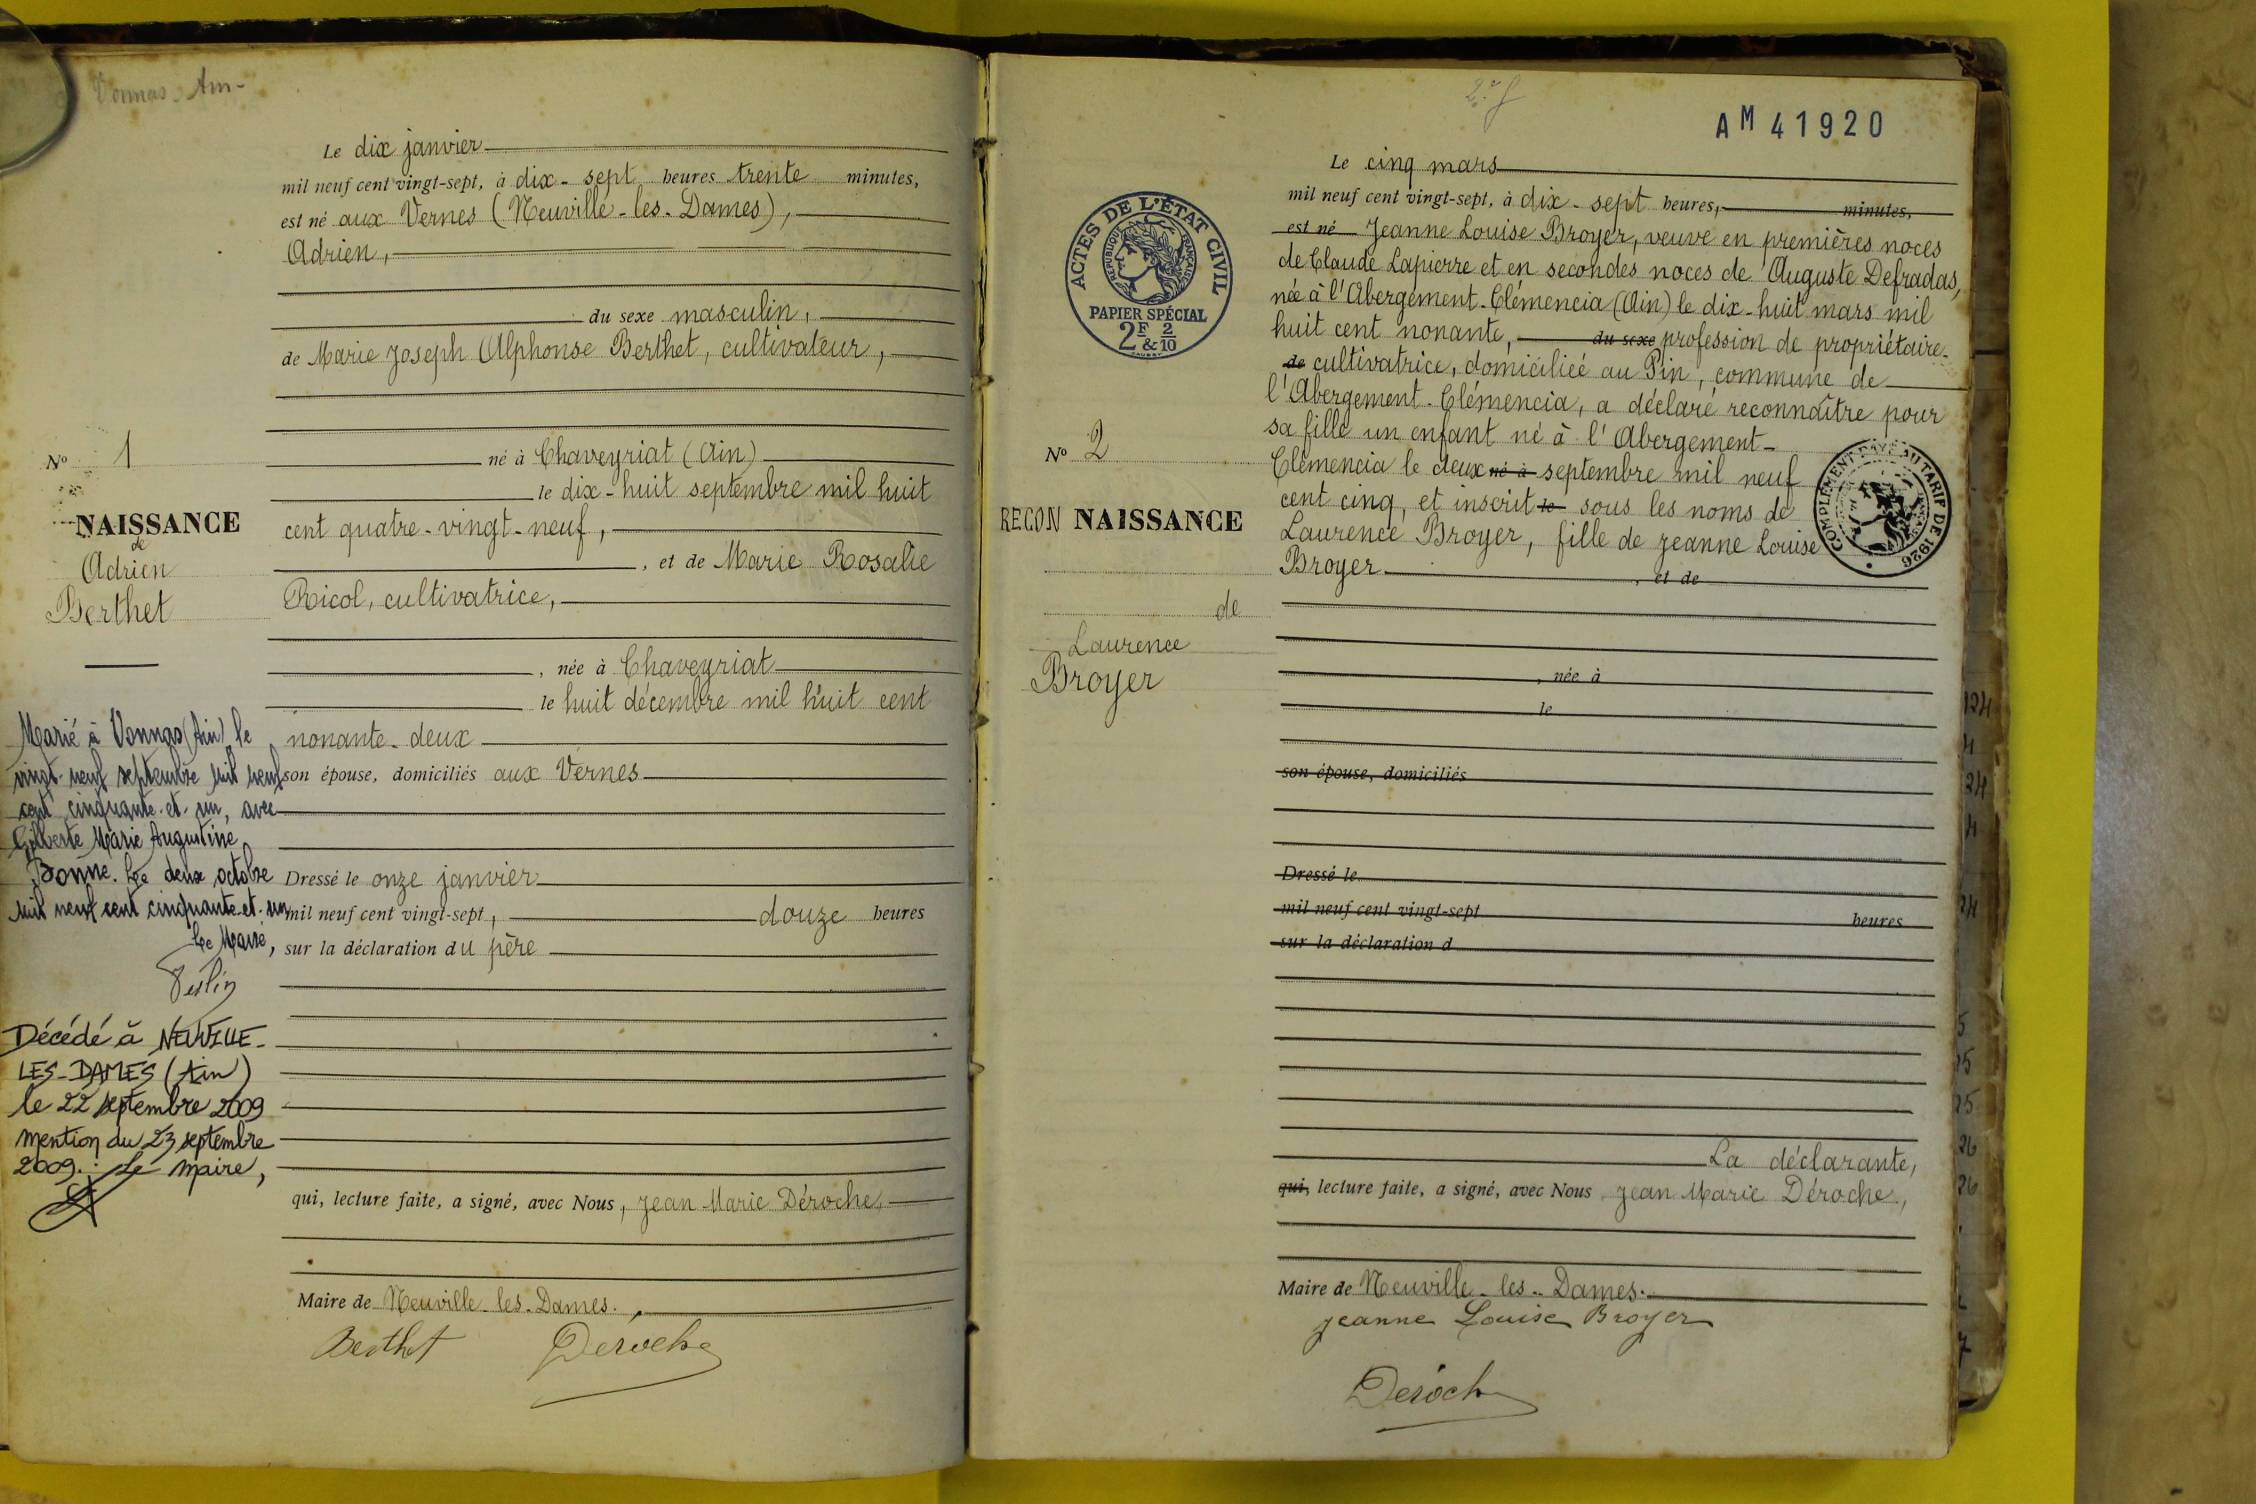 Vonnas. Ain-
Le dix janvier
mil neuf cent vingt-sept, à dix-sept heures trente minutes,
est né aux Vernes (Neuville-les-Dames),
Adrien,
du sexe masculin,
de Marie Joseph Alphonse Berthet, cultivateur,
Nº 1
né à Chaveyriat (Ain)
le dix-huit septembre mil huit
NAISSANCE
cent quatre-vingt-neuf,
de
Adrien
, et de Marie Rosalie
Berthet
Ricol, cultivatrice,
, née à Chaveyriat
le huit décembre mil huit cent
nonante-deux
son épouse, domiciliés aux Vernes
Marié à Vonnas (Ain) le
vingt-neuf septembre mil neuf
cent cinquante-et-un, avec
Gilberte Marie Augustine
Bonne. Le deux octobre
mil neuf cent cinquante-et-un
Le Maire,
Dressé le onze janvier
mil neuf cent vingt-sept, douze heures
sur la déclaration du père
Décédé à NEUVILLE-
LES-DAMES (Ain)
le 22 septembre 2009
mention du 23 septembre
2009.: Le maire,
qui, lecture faite, a signé, avec Nous, Jean Marie Déroche,
Maire de Neuville-les-Dames.
Berthet Déroche
AM 41920
Le cinq mars
mil neuf cent vingt-sept, à dix-sept heures, minutes,
est né Jeanne Louise Broyer, veuve en premières noces
de Claude Lapierre et en secondes noces de Auguste Defradas,
née à l'Abergement-Clémencia (Ain) le dix-huit mars mil
huit cent nonante, du sexe profession de propriétaire-
de cultivatrice, domiciliée au Pin, commune de
l'Abergement-Clémencia, a déclaré reconnaître pour
sa fille un enfant né à l'Abergement-
Clémencia le deux né à septembre mil neuf
cent cinq, et inscrit le sous les noms de
Laurence Broyer, fille de Jeanne Louise
Broyer , et de
ACTES DE L'ÉTAT CIVIL
RÉPUBLIQUE FRANÇAISE
PAPIER SPÉCIAL
2F & 2/10
COMPLÉMENT PAYÉ AU TARIF DE 1926
Nº 2
RECONNAISSANCE
de
Laurence
Broyer
, née à
le
son épouse, domiciliés
Dressé le
mil neuf cent vingt-sept heures
sur la déclaration d
La déclarante,
qui, lecture faite, a signé, avec Nous Jean Marie Déroche,
Maire de Neuville-les-Dames.
Jeanne Louise Broyer
Déroche